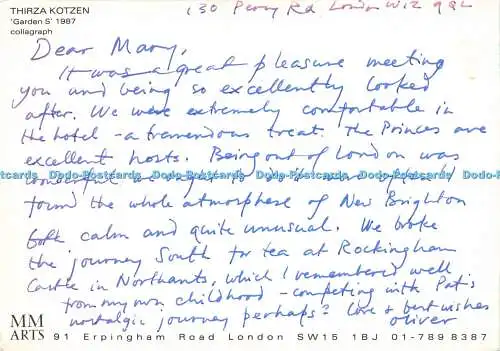 THIRZA KOTZEN
'Garden S' 1987
collagraph
130 Percy Rd London W12 9QL
Dear Mary,
It was a great pleasure meeting
you and being so excellently looked
after. We were extremely comfortable in
the hotel - a tremendous treat. The Princes are
excellent hosts. Being out of London was
Dodo-Postcards Dodo-Postcards Dodo-Postcards Dodo-Postcards
wonderful we
found the whole atmosphere of New Brighton
both calm and quite unusual. We broke
the journey South for tea at Rockingham
Castle in Northants, which I remembered well
from my own childhood - competing with Pat's
nostalgic journey perhaps? Love & best wishes
Oliver
MM
ARTS
91 Erpingham Road London SW15 1BJ 01-789 8387